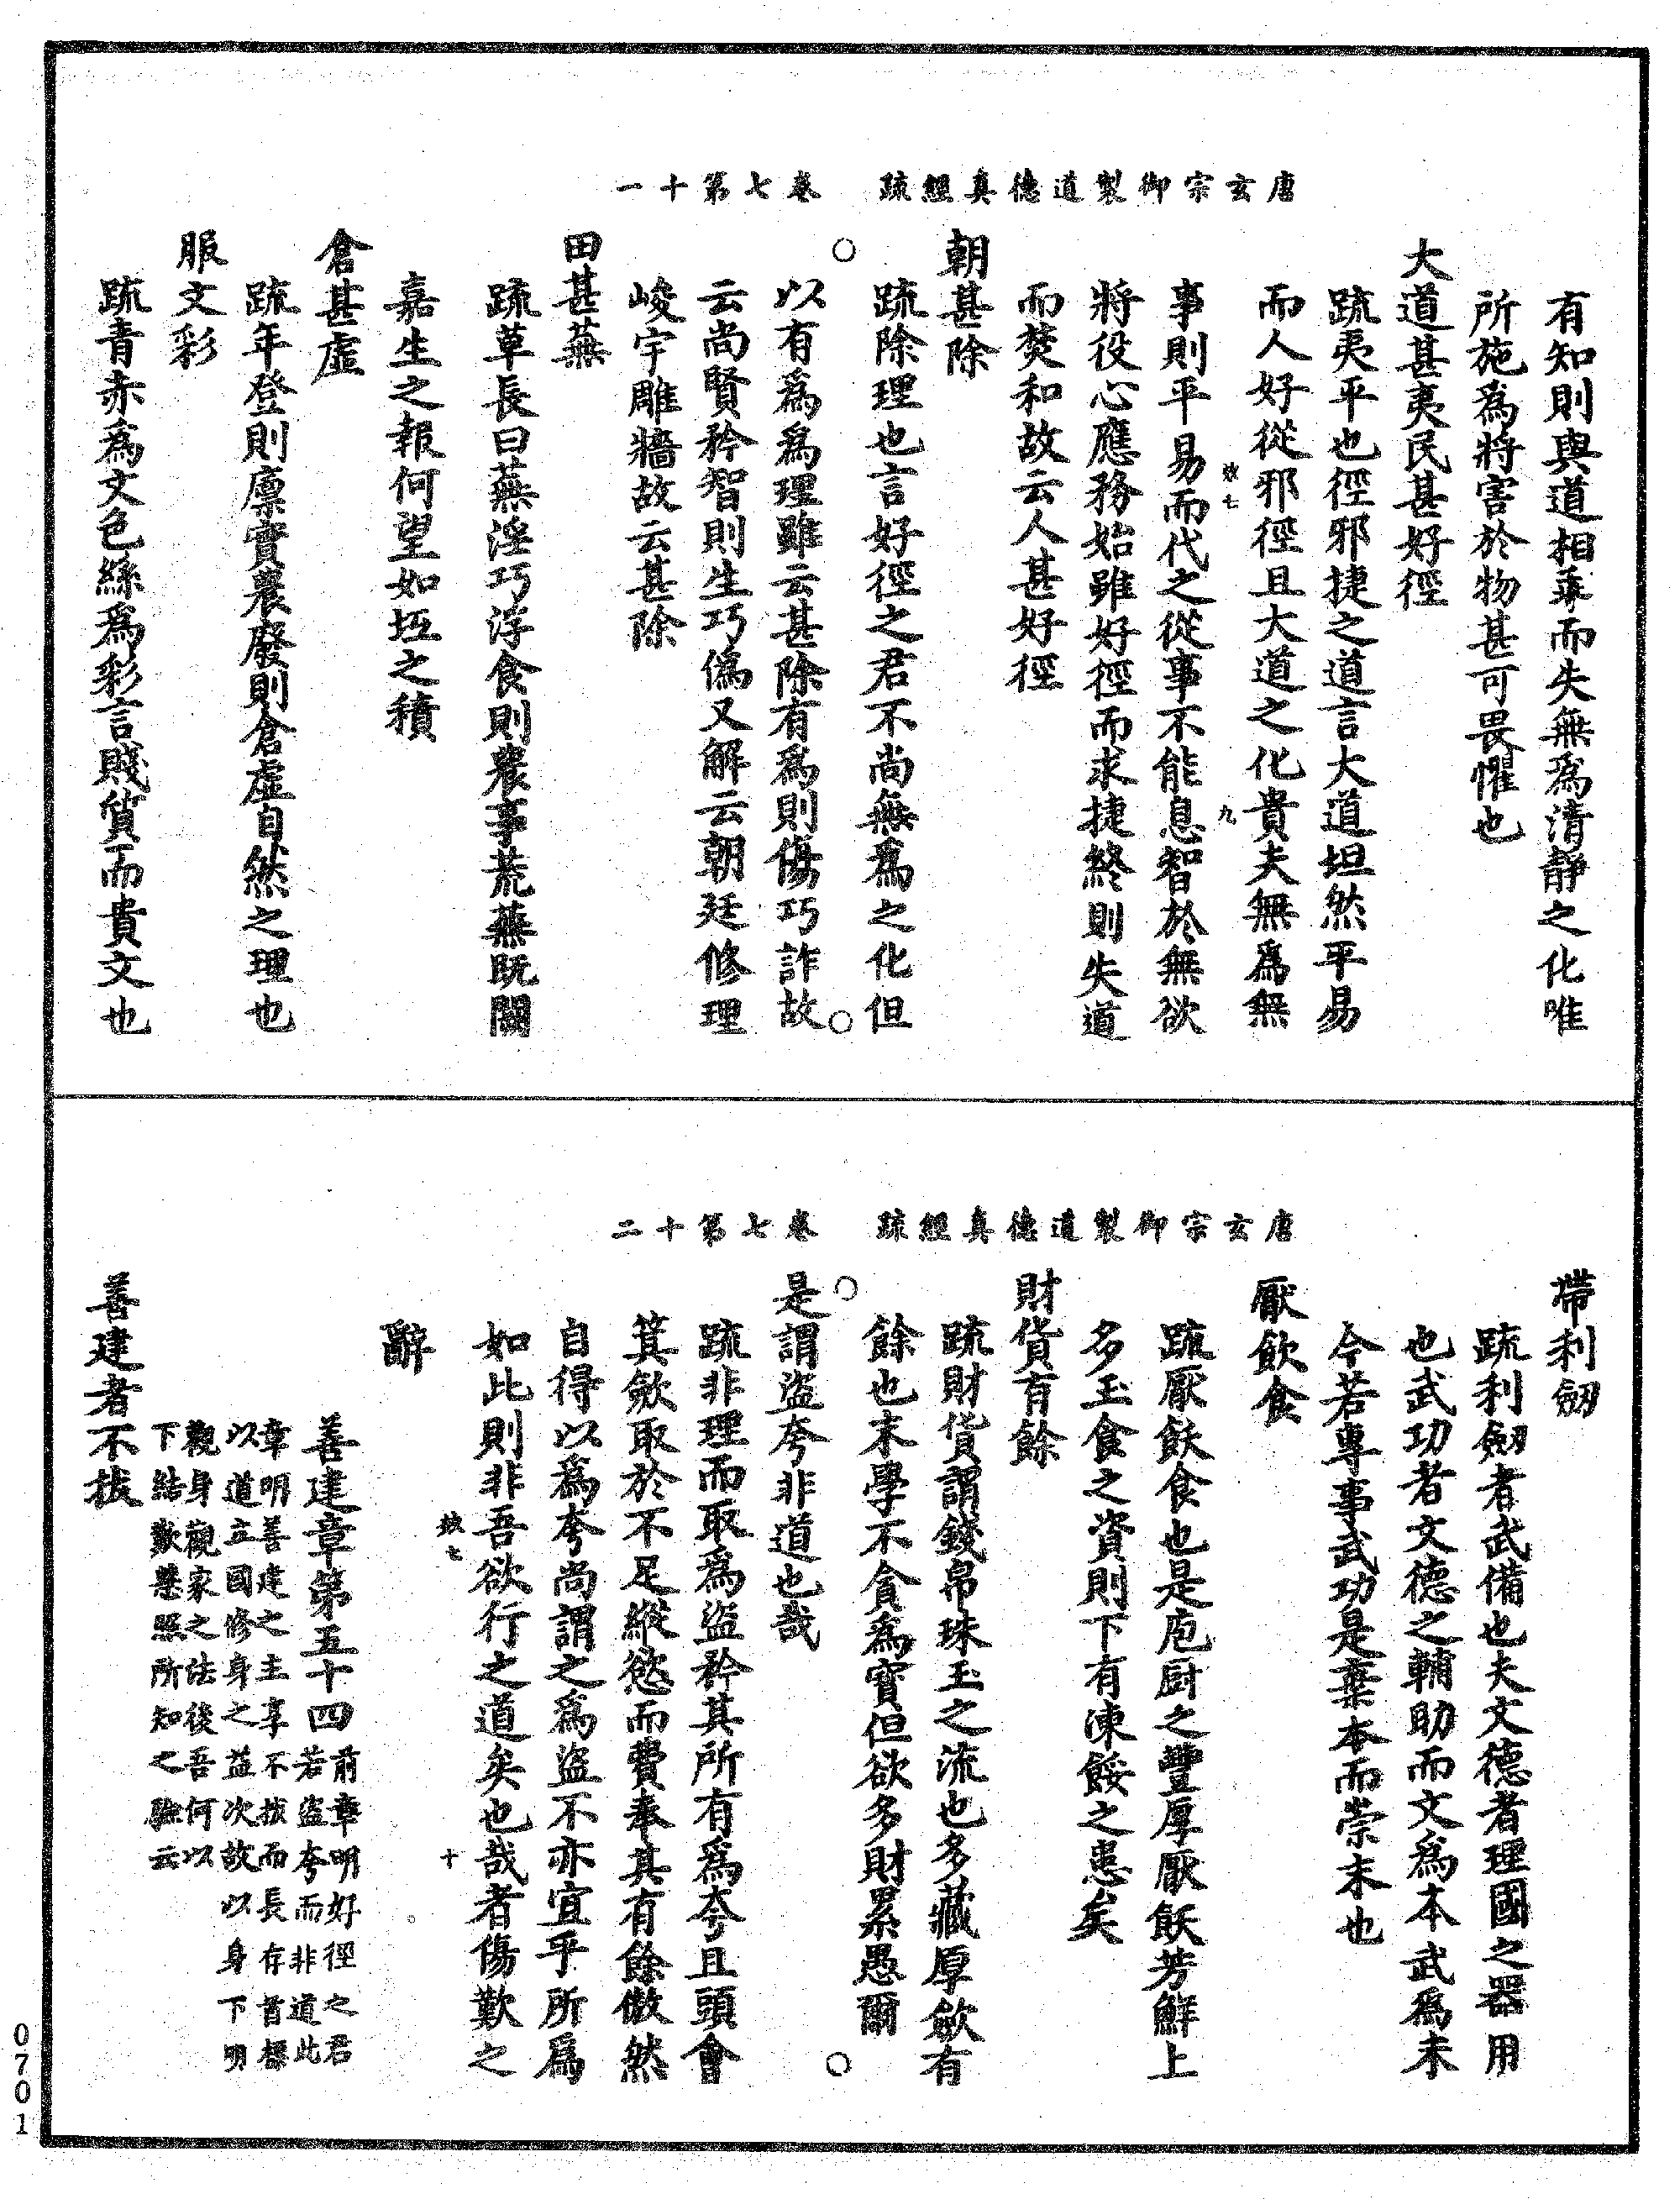 唐玄宗御製道德真經疏　卷七第十一
有知則與道相乖而失無為清靜之化唯
所施為將害於物甚可畏懼也
大道甚夷民甚好徑
疏夷平也徑邪捷之道言大道坦然平易
而人好從邪徑且大道之化貴夫無為無
效七　九
事則平易而代之從事不能息智於無欲
將役心應務始雖好徑而求捷終則失道
而焚和故云人甚好徑
朝甚除
疏除理也言好徑之君不尚無為之化但
以有為為理雖云甚除有為則傷巧詐故
云尚賢矜智則生巧偽又解云朝廷修理
峻宇雕牆故云甚除
田甚蕪
疏草長曰蕪淫巧浮食則農事荒蕪既闕
嘉生之報何望如坻之積
倉甚虛
疏年登則廪實農廢則倉虛自然之理也
服文彩
疏青赤為文色絲為彩言賤質而貴文也
唐玄宗御製道德真經疏　卷七第十二
帶利劒
疏利劒者武備也夫文德者理國之器用
也武功者文德之輔助而文為本武為末
今若專事武功是棄本而崇末也
厭飲食
疏厭飫食也是庖厨之豐厚厭飫芳鮮上
多玉食之資則下有凍餒之患矣
財貨有餘
疏財貨謂錢帛珠玉之流也多藏厚歛有
餘也末學不貪為寶但欲多財累愚爾
是謂盜夸非道也哉
疏非理而取為盜矜其所有為夸且頭會
箕歛取於不足縱慾而費奉其有餘傲然
自得以為夸尚謂之為盜不亦宜乎所為
如此則非吾欲行之道矣也哉者傷歎之
效七　十
辭
善建章第五十四　前章明好徑之君
若盜夸而非道此
章明善建之主享不拔而長存首標
以道立國修身之益次故以身下明
觀身觀家之法後吾何以
下結歎懸照所知之驗云
善建者不拔
0701